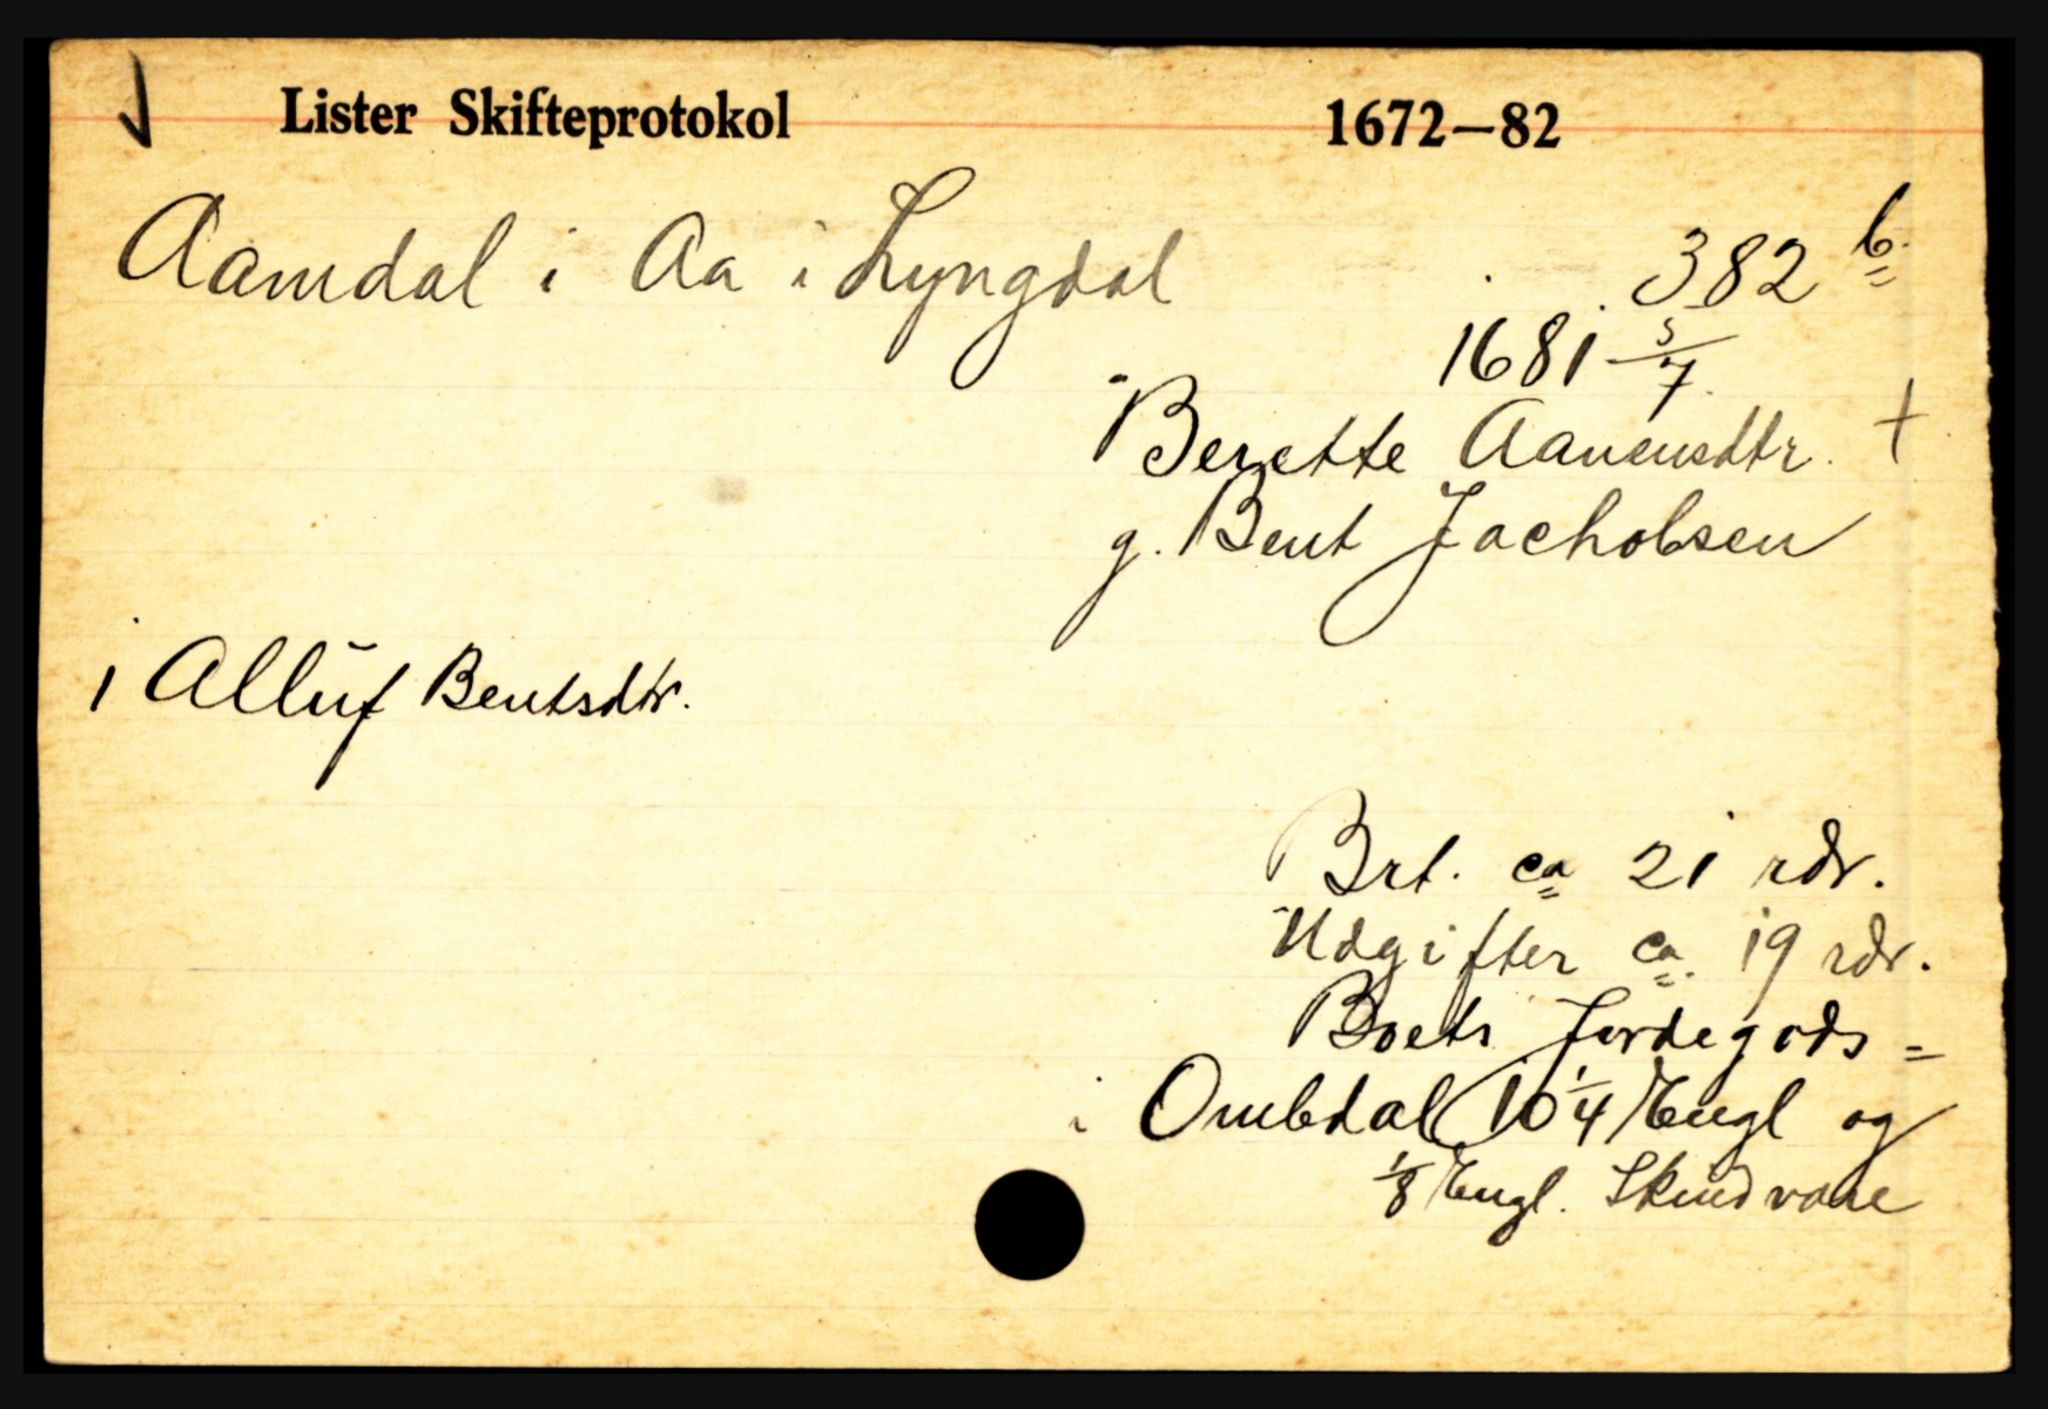 Lister Skifteprotokol 1672–82
Aamdal i Aa i Lyngdal 382 b.
1681 5/7.
Berette Aanensdtr. †
g. Bent Jacholsen
1 Alluf Bentsdtr.
Brt. ca 21 rdr.
Udgifter ca. 19 rdr.
Boets Jordegods =
i Ombdal 10 1/4 Engl og
1/8 Engl. Skindvare